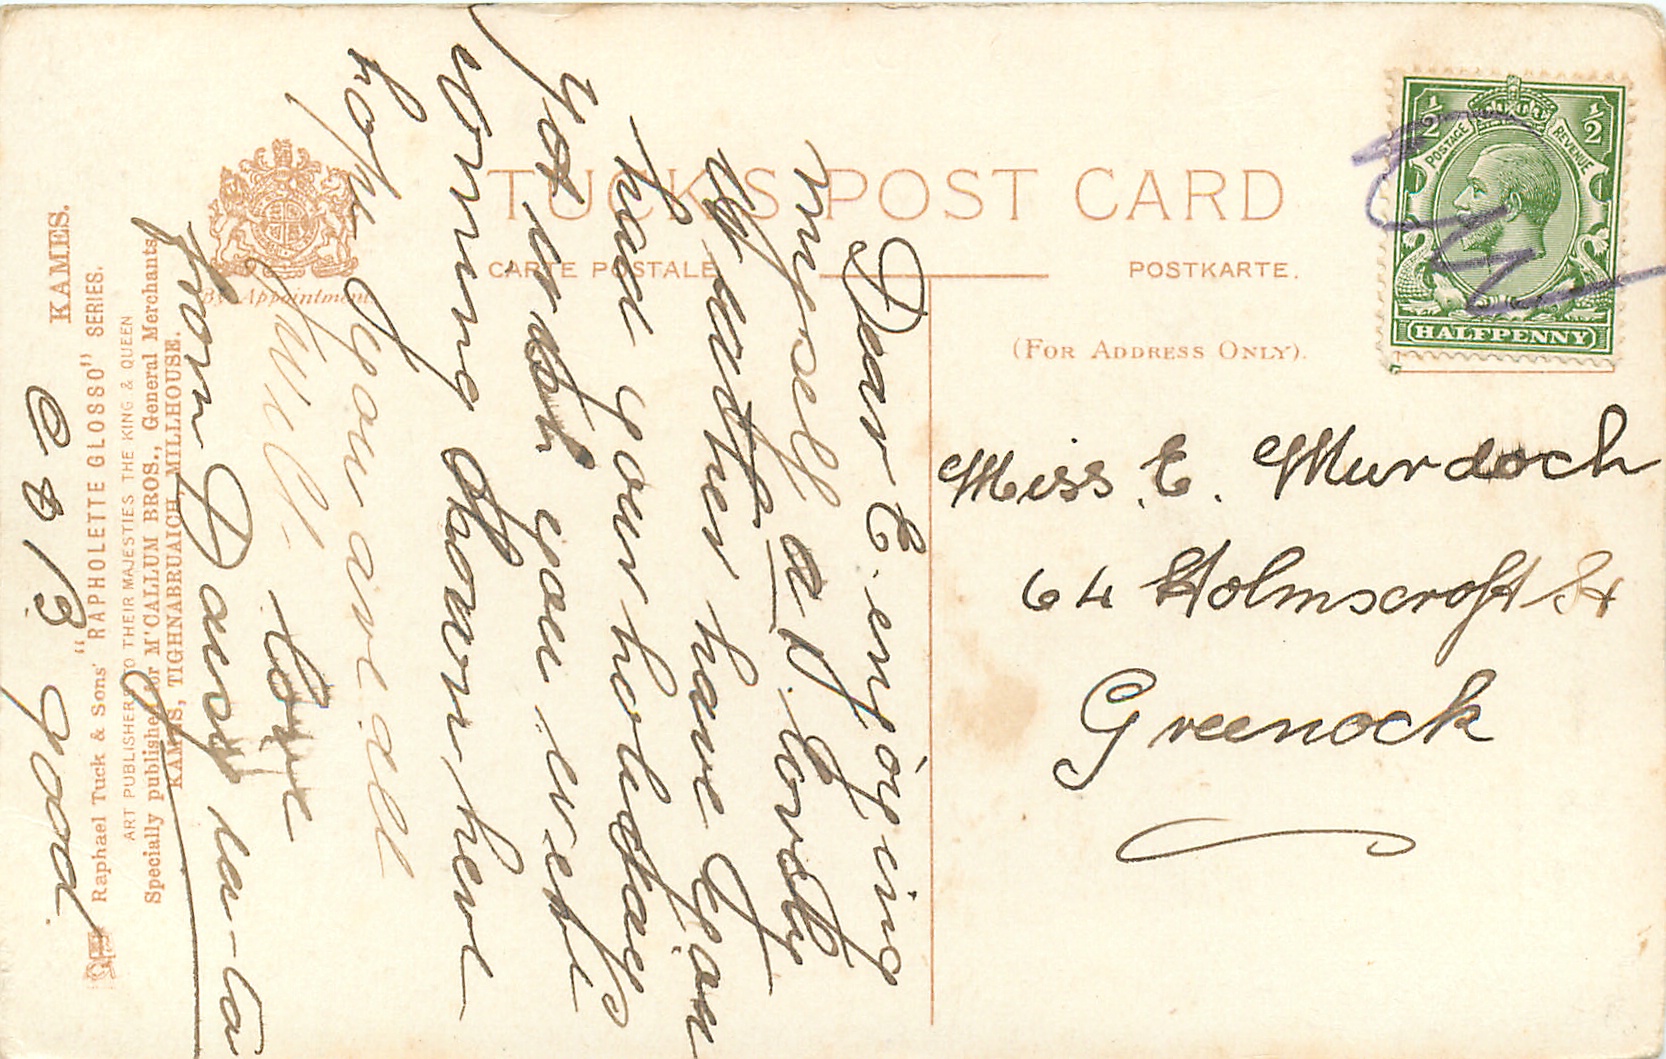 TUCK'S POST CARD
CARTE POSTALE
POSTKARTE.
(FOR ADDRESS ONLY).
By Appointment.
½ ½
POSTAGE REVENUE
HALFPENNY
Miss. E. Murdoch
64 Holmscroft St
Greenock
Dear E. enjoying
myself a 1. Lovely
weather have you
had your holidays
yet wish you were
coming down here
hope you are all
well.
love
from Daisy ta-ta
good
KAMES.
"RAPHOLETTE GLOSSO" SERIES.
Raphael Tuck & Sons'
ART PUBLISHERS TO THEIR MAJESTIES THE KING & QUEEN
Specially published for M'CALLUM BROS., General Merchants,
KAMES, TIGHNABRUAICH, MILLHOUSE.